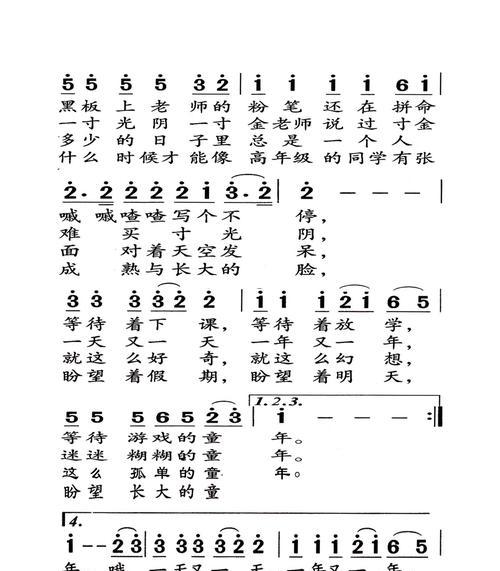 5 5 5 5 3 2 | i i i i 6 i |
黑板上老师的粉笔还在拼命
一寸光阴一寸金老师说过寸金
多少的日子里总是一个人
什么时候才能像高年级的同学有张
2. 2 2 2 2 i 3. 2 | 2 — — — |
嘁嘁喳喳写个不停,
难买寸光阴,
面对着天空发呆,
成熟与长大的脸,
3 3 3 3 2 2 | i i i 2 i 6 5 |
等待着下课,等待着放学,
一天又一天一年又一年,
就这么好奇,就这么幻想,
盼望着假期,盼望着明天,
1.2.3.
5 5 5 6 5 2 3 | i — — :||
等待游戏的童年。
迷迷糊糊的童年。
这么孤单的童年。
盼望长大的童
4.
i - - 2 3 | 3 3 3 3 2 2 | i i i 2 i 6 5 |
年哦一天又一天一年又一年